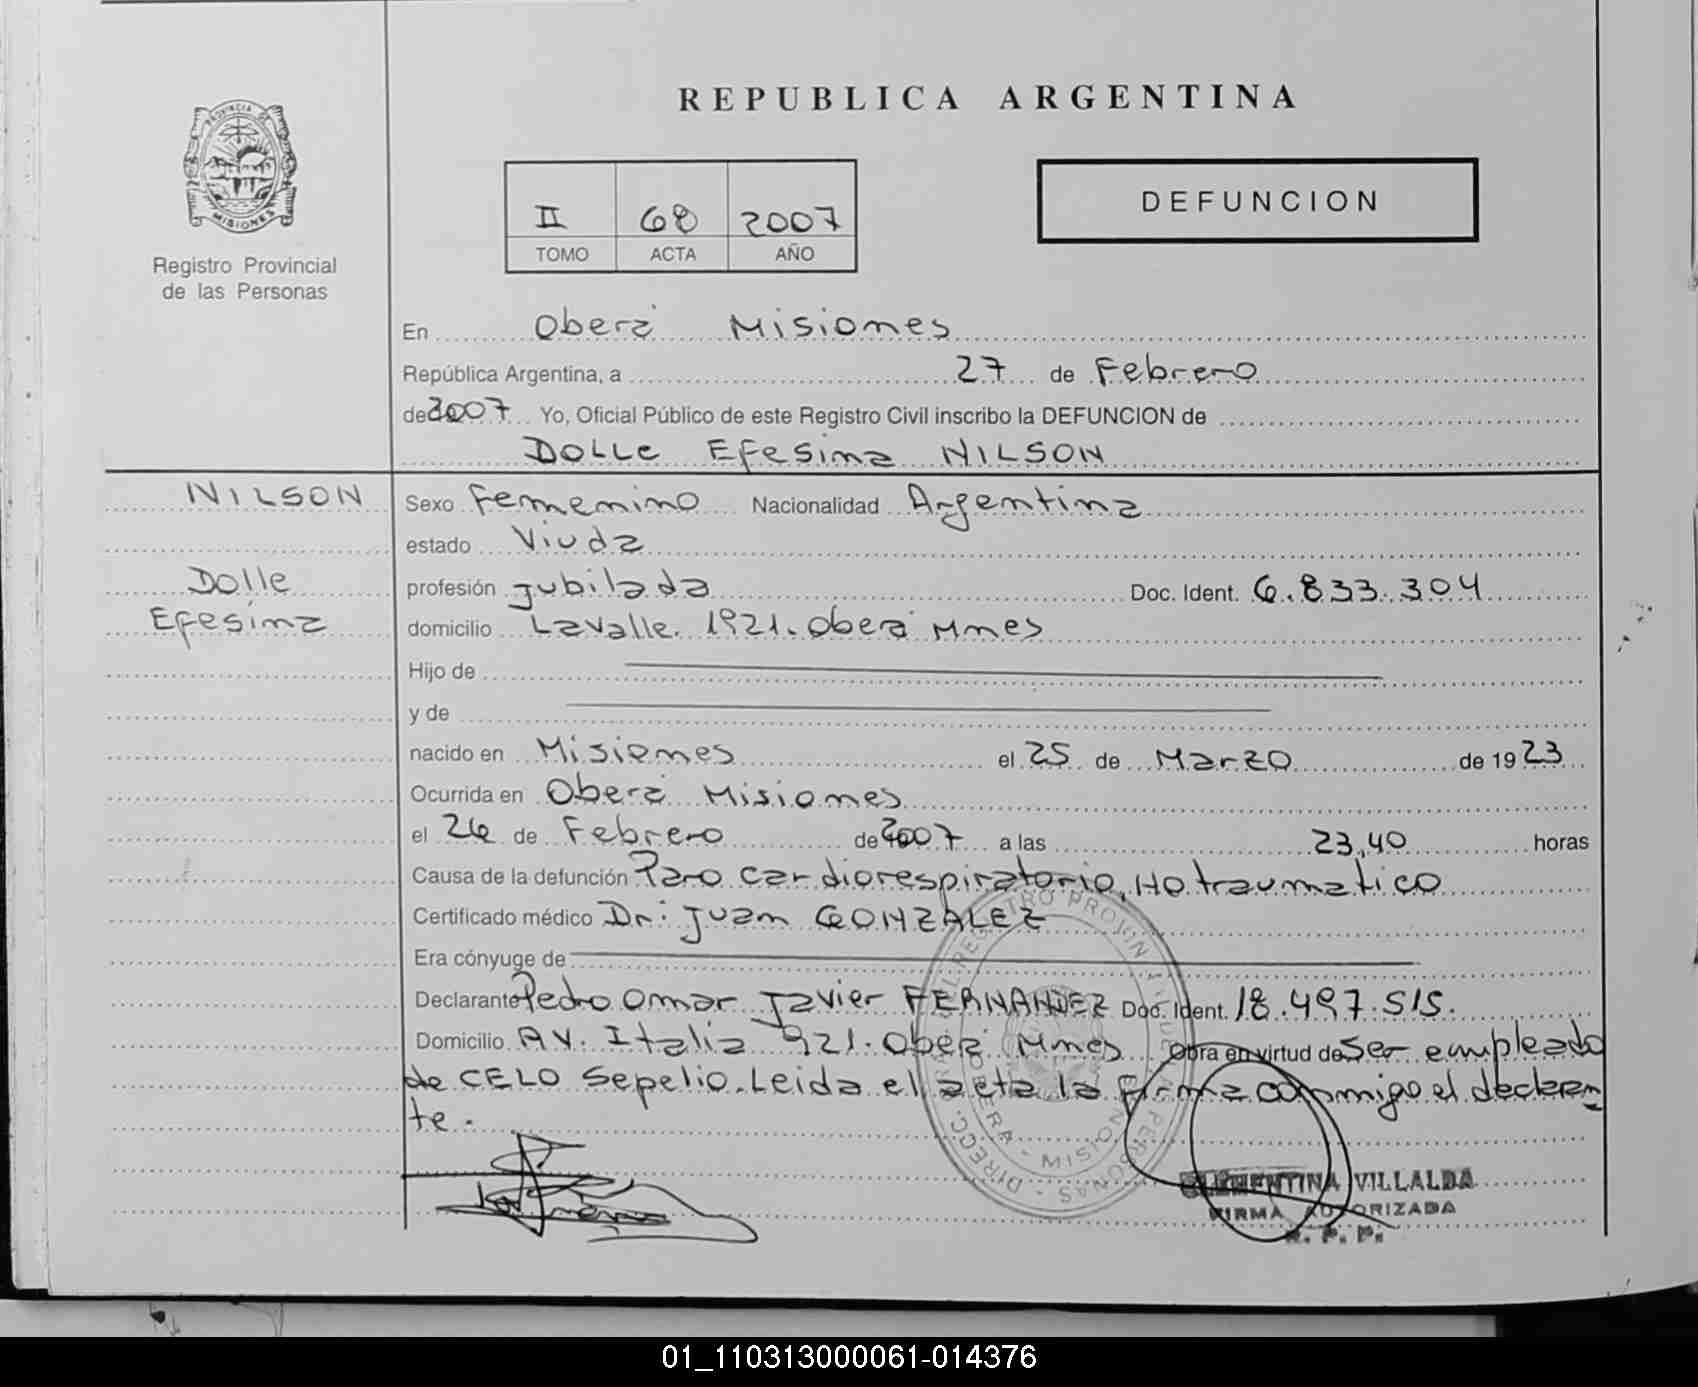 REPUBLICA ARGENTINA
PROVINCIA DE
MISIONES
Registro Provincial
de las Personas
II 68 2007
TOMO ACTA AÑO
DEFUNCION
En Oberá Misiones
República Argentina, a 27 de Febrero
de 2007 Yo, Oficial Público de este Registro Civil inscribo la DEFUNCION de
Dolle Efesina NILSON
NILSON
Dolle
Efesina
Sexo Femenino Nacionalidad Argentina
estado Viuda
profesión jubilada Doc. Ident. 6.833.304
domicilio Lavalle. 1921. Oberá Mnes
Hijo de
y de
nacido en Misiones el 25 de Marzo de 1923
Ocurrida en Oberá Misiones
el 26 de Febrero de 2007 a las 23,40 horas
Causa de la defunción Paro cardiorespiratorio, No traumatico
Certificado médico Dr: Juan GONZALEZ
Era cónyuge de
Declarante Pedro Omar Javier FERNANDEZ Doc. Ident. 18.497.515.
Domicilio AV. Italia 921. Oberá Mnes Obra en virtud de Ser empleado
de CELO Sepelio. Leida el acta la firma conmigo el declaran
te.
DIRECC. GRAL REGISTRO PROVINCIAL DE PERSONAS
OBERA - MISIONES
CLEMENTINA VILLALDA
FIRMA AUTORIZADA
R. P. P.
01_110313000061-014376